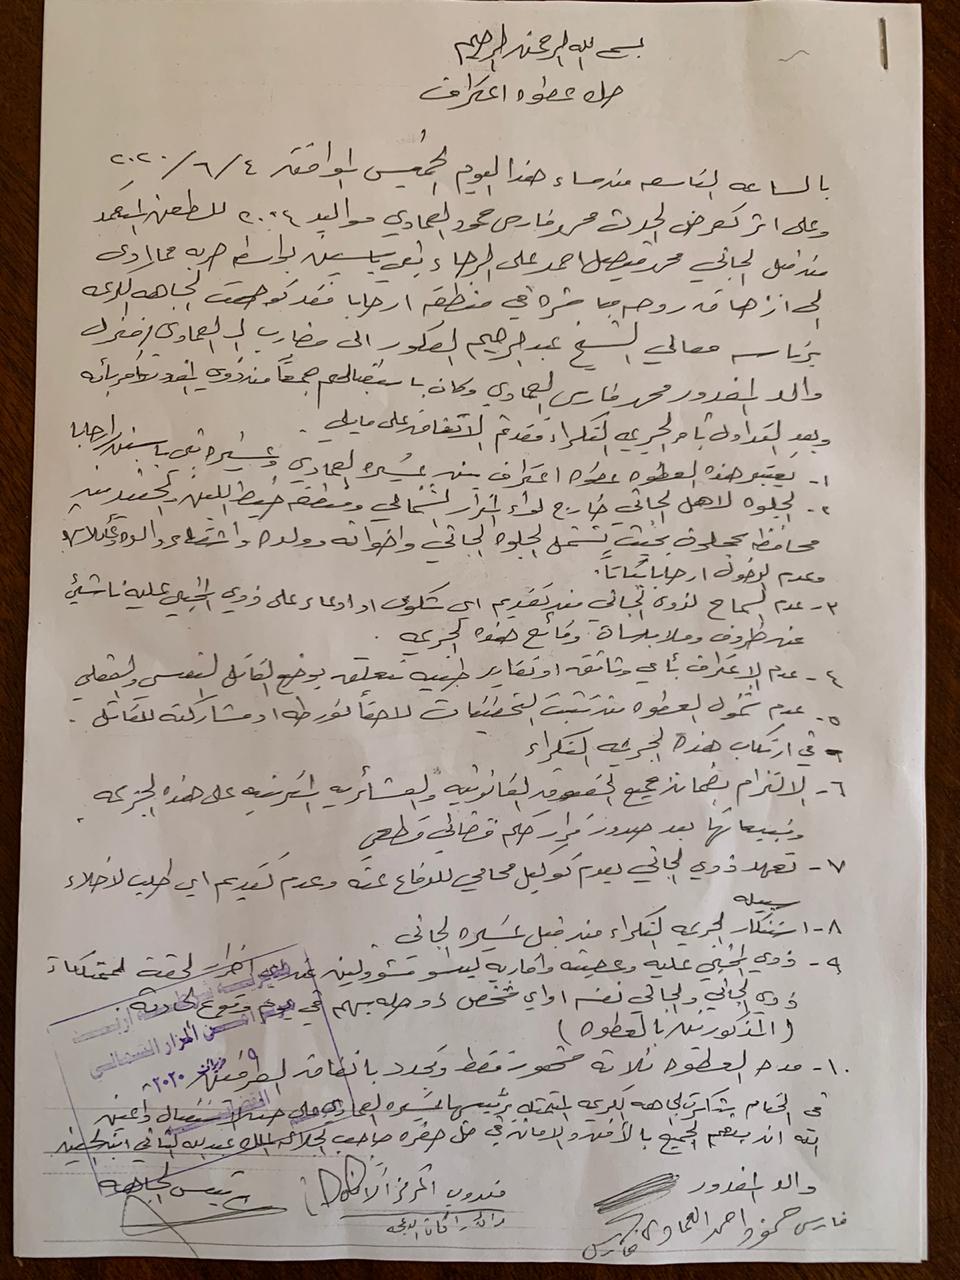 بسم الله الرحمن الرحيم
صك عطوه اعتراف
بالساعه التاسعه من مساء هذا اليوم الخميس الموافق ٤/٦/٢٠٢٠
وعلى اثر تعرض الحدث محمد فارس حمود العماوي مواليد ٢٠٠٤ للطعن المتعمد
من قبل الجاني محمد فيصل احمد علي الرجا بني ياسين بواسطه حربه مما ادى
الى ازهاق روحه مباشره في منطقه ارحابا فقد توجهت الجاهه الكريمه
برئاسه معالي الشيخ عبدالرحيم العكور الى مضارب ال العماوي / منزل
والد المغدور محمد فارس العماوي وكان باستقبالهم جمعاً من ذوي المغدور واقربائه
وبعد التداول بأمر الجريمه النكراء فقد تم الأتفاق على مايلي:
١- تعتبر هذه العطوه عطوه اعتراف بين عشيره العماوي وعشيره بني ياسين ارحابا
٢- الجلوه لاهل الجاني خارج لواء المزار الشمالي ومنطقه خيط اللبن والجنيد من
محافظه عجلون بحيث تشمل الجلوه الجاني واخوانه وولده واشقاء والده
وعدم الدخول ارحابا بتاتاً.
٣- عدم السماح لذوي الجاني من تقديم اي شكوى او ادعاء على ذوي المجني عليه ناشئ
عن ظروف وملابسات وقائع هذه الجريمه.
٤- عدم الاعتراف بأي وثائق او تقارير طبيه تتعلق بوضع القاتل النفسي والعقلي
٥- عدم شمول العطوه من تثبت التحقيقات لاحقاً تورطه او مشاركته للقاتل.
في ارتكاب هذه الجريمه النكراء
٦- الالتزام بضمان جميع الحقوق القانونيه والعشائريه المترتبه على هذه الجريمه
وتبعاتها بعد صدور قرار حكم قضائي قطعي
٧- تعهد ذوي الجاني بعدم توكيل محامي للدفاع عنه وعدم تقديم اي طلب لاخلاء
سبيله
٨- استنكار الجريمه النكراء من قبل عشيره الجاني.
٩- ذوي المجني عليه وعصبته واقاربه ليسو مسؤولين عن اي اضرار لحقت لممتلكات
ذوي الجاني والجاني نفسه او اي شخص له صله بهم في يوم وقوع الحادثه.
(المذكورين بالعطوه)
١٠- مده العطوه ثلاثه شهور فقط وتجدد باتفاق الطرفين
في الختام تشكر الجاهه الكريمه المتمثله برئيسها عشيره العماوي على حسن الاستقبال داعين
الله ان ينعم الجميع بالأمن والامان في ظل حضره صاحب الجلاله الملك عبدالله الثاني ابن الحسين
والد المغدور
مندوب المركز الأمني
رئيس الجاهه
فارس حمود احمد العماوي
فارس
مديريه شرطة اربد
مركز امن المزار الشمالي
٩ حزيران ٢٠٢٠